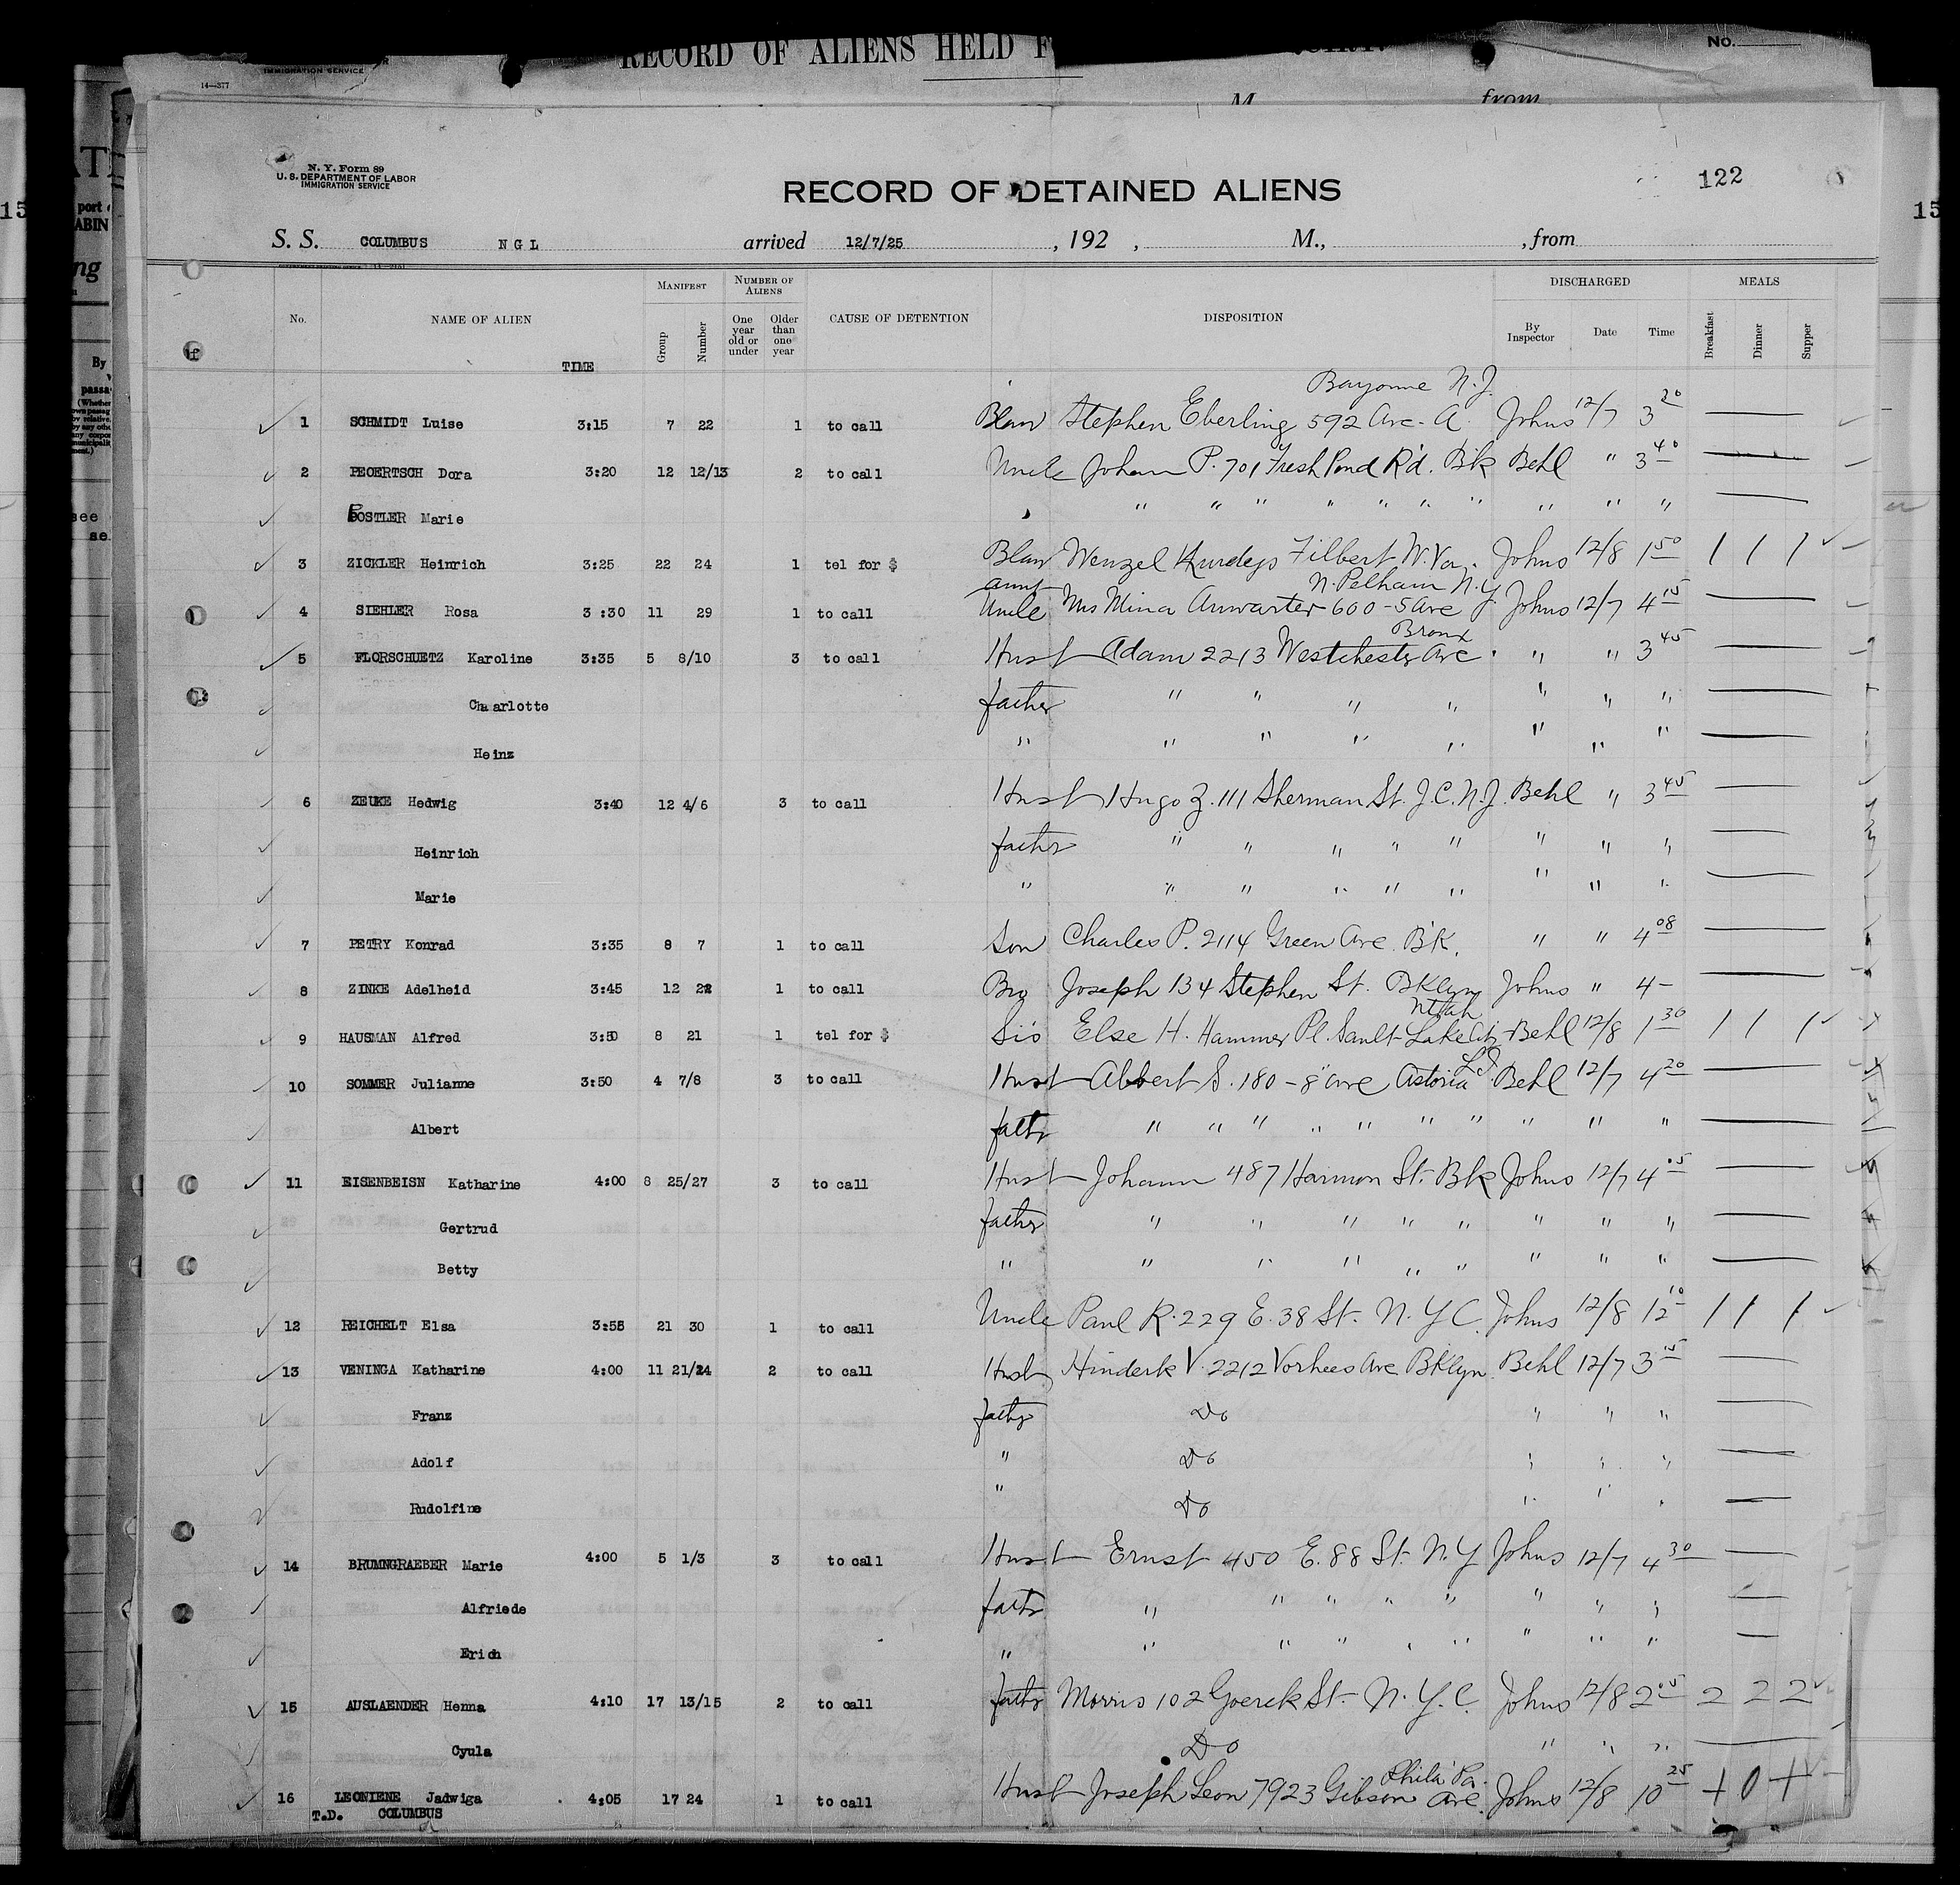 RECORD OF ALIENS HELD F
No.
IMMIGRATION SERVICE
14—377
M from
N. Y. Form 89
U. S. DEPARTMENT OF LABOR
IMMIGRATION SERVICE
RECORD OF DETAINED ALIENS
122
S. S. COLUMBUS N G L arrived 12/7/25 , 192 , M., , from
No. NAME OF ALIEN TIME MANIFEST Group Number NUMBER OF ALIENS One year old or under Older than one year CAUSE OF DETENTION DISPOSITION DISCHARGED By Inspector Date Time MEALS Breakfast Dinner Supper
Bayonne N.J.
1 SCHMIDT Luise 3:15 7 22 1 to call Blaw Stephen Eberling 592 Ave. A Johns 12/7 3 20
2 PEOERTSCH Dora 3:20 12 12/13 2 to call Uncle Johann P. 701 Fresh Pond Rd. Bk Behl " 3 40
POSTLER Marie " " " " " " " " " "
3 ZICKLER Heinrich 3:25 22 24 1 tel for $ Blaw Wenzel Filbert W. Va. Johns 12/8 1 50 1 1 1
aunt N. Pelham N.Y.
4 SIEHLER Rosa 3 :30 11 29 1 to call Uncle Mrs Mina Anwarter 600 - 5 Ave Johns 12/7 4 15
Bronx
5 FLORSCHUETZ Karoline 3:35 5 8/10 3 to call Husb Adam 2213 Westchester Ave " " 3 45
Charlotte father " " " " " " "
Heinz " " " " " " " "
6 ZEUKE Hedwig 3:40 12 4/6 3 to call Husb Hugo Z. 111 Sherman St. J.C. N.J. Behl " 3 45
Heinrich father " " " " " " " "
Marie " " " " " " " " "
7 PETRY Konrad 3:35 8 7 1 to call Son Charles P. 2114 Green Ave. B'K. " " 4 08
8 ZINKE Adelheid 3:45 12 22 1 to call Bro Joseph 134 Stephen St. BKlyn Johns " 4 -
Utah
9 HAUSMAN Alfred 3:50 8 21 1 tel for $ Sis Else H. Hammer Pl. Sault Lake City Behl 12/8 1 30 1 1 1
L.I.
10 SOMMER Julianne 3:50 4 7/8 3 to call Husb Albert S. 180 - 8" Ave Astoria Behl 12/7 4 20
Albert father " " " " " " " " " "
11 EISENBEISN Katharine 4:00 8 25/27 3 to call Husb Johann 487 Harmon St. Bk Johns 12/7 4 05
Gertrud father " " " " " " " "
Betty " " " " " " " " "
12 REICHELT Elsa 3:55 21 30 1 to call Uncle Paul R. 229 E. 38 St. N. Y C. Johns 12/8 12 10 1 1 1
13 VENINGA Katharine 4:00 11 21/24 2 to call Husb Hinderk V. 2212 Vorhees Ave BKlyn Behl 12/7 3 15
Franz father Do " " "
Adolf " Do " " "
Rudolfine " Do " " "
14 BRUMNGRAEBER Marie 4:00 5 1/3 3 to call Husb Ernst 450 E. 88 St. N.Y Johns 12/7 4 30
Alfriede father " " " " " " " "
Erich " " " " " " " " "
15 AUSLAENDER Henna 4:10 17 13/15 2 to call father Morris 102 Goerck St. N.Y.C. Johns 12/8 2 05 2 2 2
Cyula Do " " "
Phila Pa.
16 LEONIENE Jadwiga 4:05 17 24 1 to call Husb Joseph Leon 7923 Gibson Ave. Johns 12/8 10 25 + 0 +
T.D. COLUMBUS